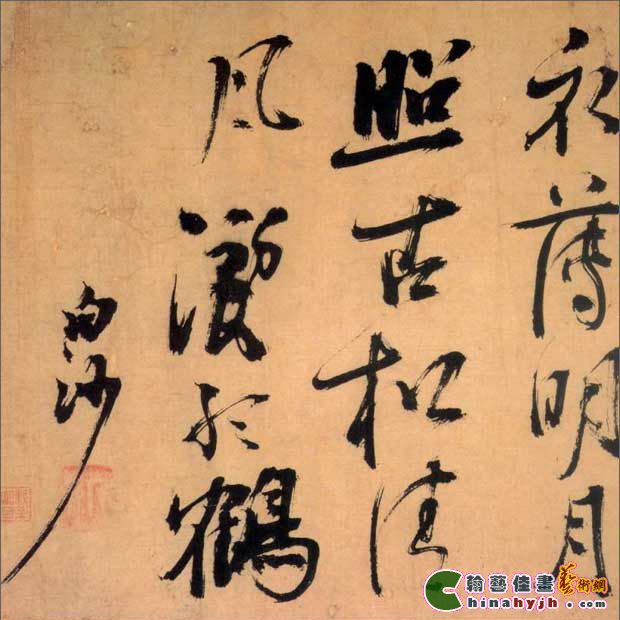 薄明月
照古松清
風鶴
白沙
翰藝佳畫藝術網
Chinahyjh.com